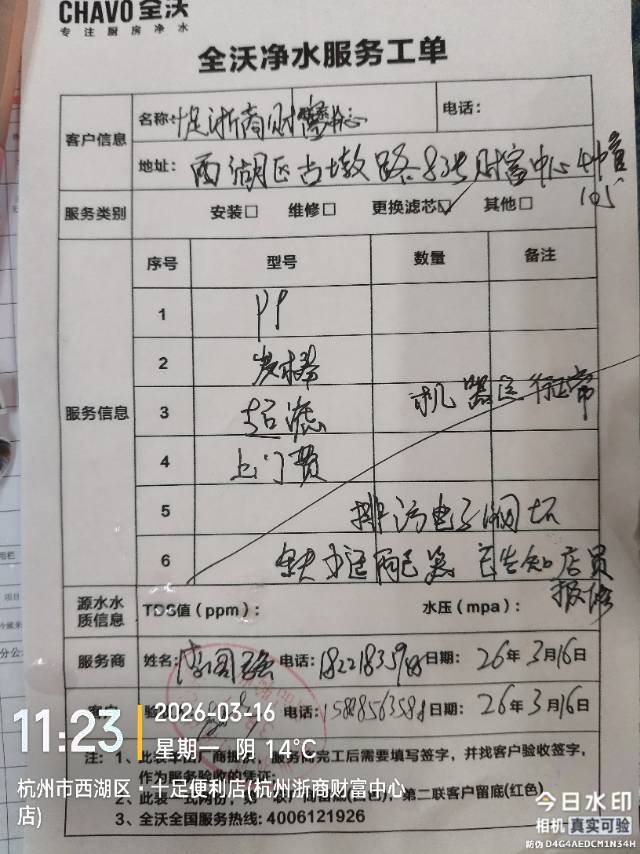 CHAVO 全沃
专注厨房净水
全沃净水服务工单
客户信息
名称: 十足浙商财富中心 电话:
地址: 西湖区古墩路 财富中心
服务类别 安装□ 维修□ 更换滤芯☑ 其他□
服务信息
序号 型号 数量 备注
1 PP
2 炭棒
3 超滤 机器运行正常
4 上门费
5 排污电子阀坏
6 已告知店员
报修
源水水质信息 TDS值(ppm): 水压(mpa):
服务商 姓名: 电话: 日期: 26年3月16日
客户 电话: 日期: 26年3月16日
注: 1、 服务商完工后需要填写签字,并找客户验收签字,
作为服务验收的凭证;
2、此表一式两份, 第二联客户留底(红色)
3、全沃全国服务热线: 4006121926
11:23
2026-03-16
星期一 阴 14℃
杭州市西湖区·十足便利店(杭州浙商财富中心店)
今日水印
相机 真实可验
防伪 D4G4AEDCM1N34H